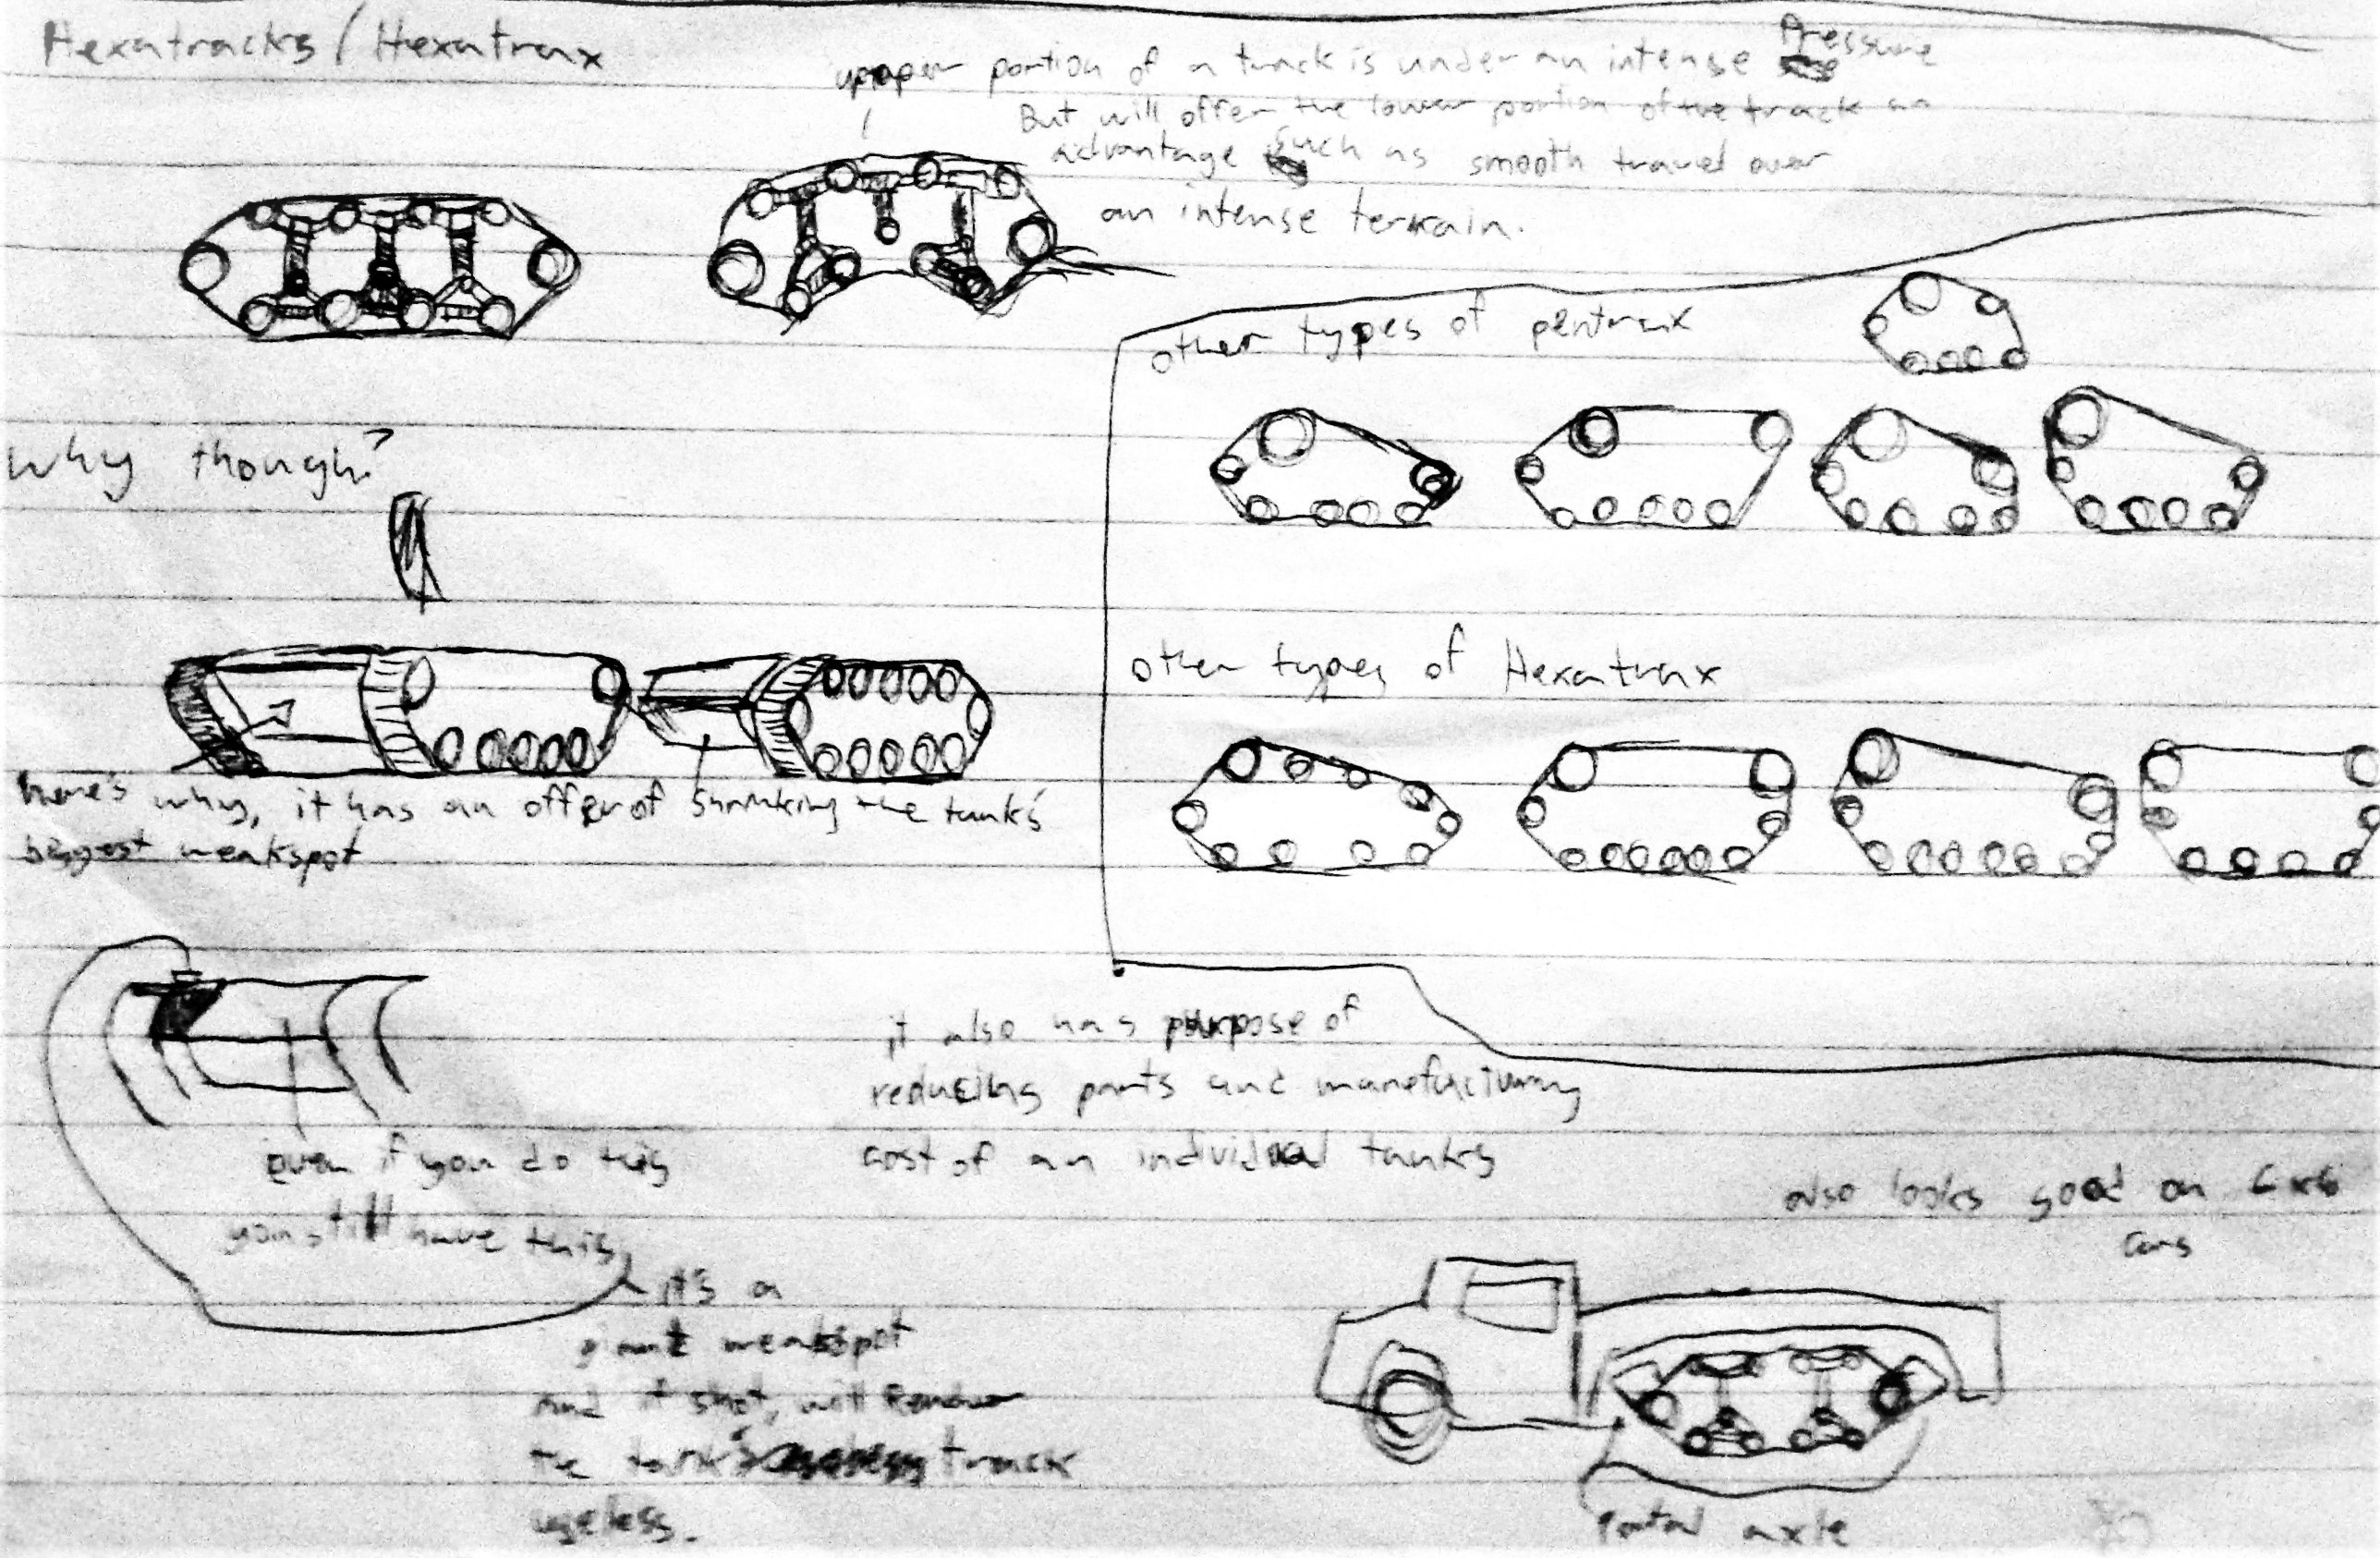 Hexatracks / Hexatrax
upper portion of a track is under an intense Pressure
But will offer the lower portion of the track an
advantage such as smooth travel over
an intense terrain.
other types of pentrax
Why though?
other types of Hexatrax
here's why, it has an offer of shrinking the tank's
biggest weakspot
it also has purpose of
reducing parts and manefacturing
cost of an individual tanks
even if you do this
you still have this,
it's a
giant weakspot
And if shot, will Render
the tank's track
useless.
also looks good on 6x6
cars
Portal axle